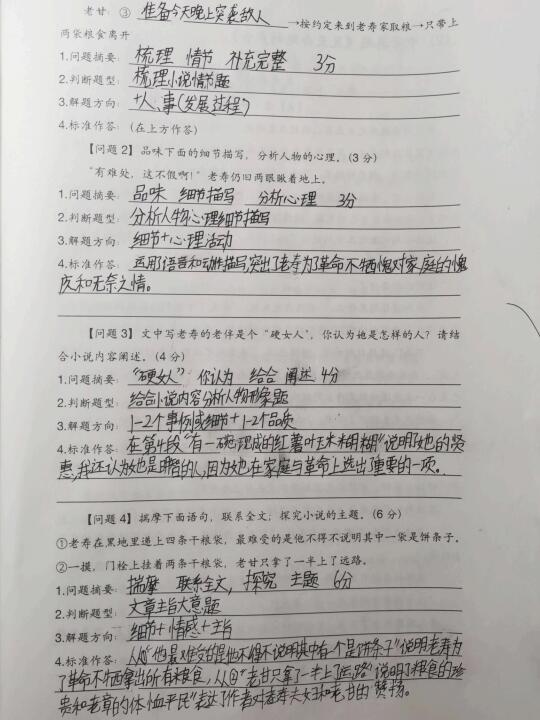 老甘：③ 准备今天晚上突袭敌人 →按约定来到老寿家取粮→只带上
两袋粮食离开
1.问题摘要：梳理 情节 补充完整 3分
2.判断题型：梳理小说情节题
3.解题方向：十人、事(发展过程)
4.标准作答：(在上方作答)
【问题2】品味下面的细节描写，分析人物的心理。(3分)
"有难处，这不假啊！"老寿仍旧两眼瞅着地上。
1.问题摘要：品味 细节描写 分析心理 3分
2.判断题型：分析人物心理细节描写
3.解题方向：细节+心理活动
4.标准作答：运用了语言和动作描写,突出了老寿为了革命不牺愧对家庭的愧
疚和无奈之情。
【问题3】文中写老寿的老伴是个"硬女人"，你认为她是怎样的人？请结
合小说内容阐述。(4分)
1.问题摘要："硬女人" 你认为 结合 阐述 4分
2.判断题型：结合小说内容分析人物形象题
3.解题方向：1-2个事例或细节+1-2个品质
4.标准作答：在第4段"有一碗现成的红薯叶玉米糊糊"说明了她的贤
惠,我还认为她是明智的人,因为她在家庭与革命上选出重要的一项。
【问题4】揣摩下面语句，联系全文，探究小说的主题。(6分)
①老寿在黑地里递上四条干粮袋，最难受的是他不得不说明其中一袋是饼条子。
②一摸，门栓上挂着两条干粮袋，老甘只拿了一半上了远路。
1.问题摘要：揣摩 联系全文，探究 主题 6分
2.判断题型：文章主旨大意题
3.解题方向：细节+情感+主旨
4.标准作答：从①"他最难受的是他不得不说明其中有一个是饼条子"说明老寿为
了革命不牺拿出所有粮食,从②"老甘只拿了一半上了远路"说明了粮食的珍
贵和老章的体恤平民"表达了作者对老寿夫女和老甘的赞扬。